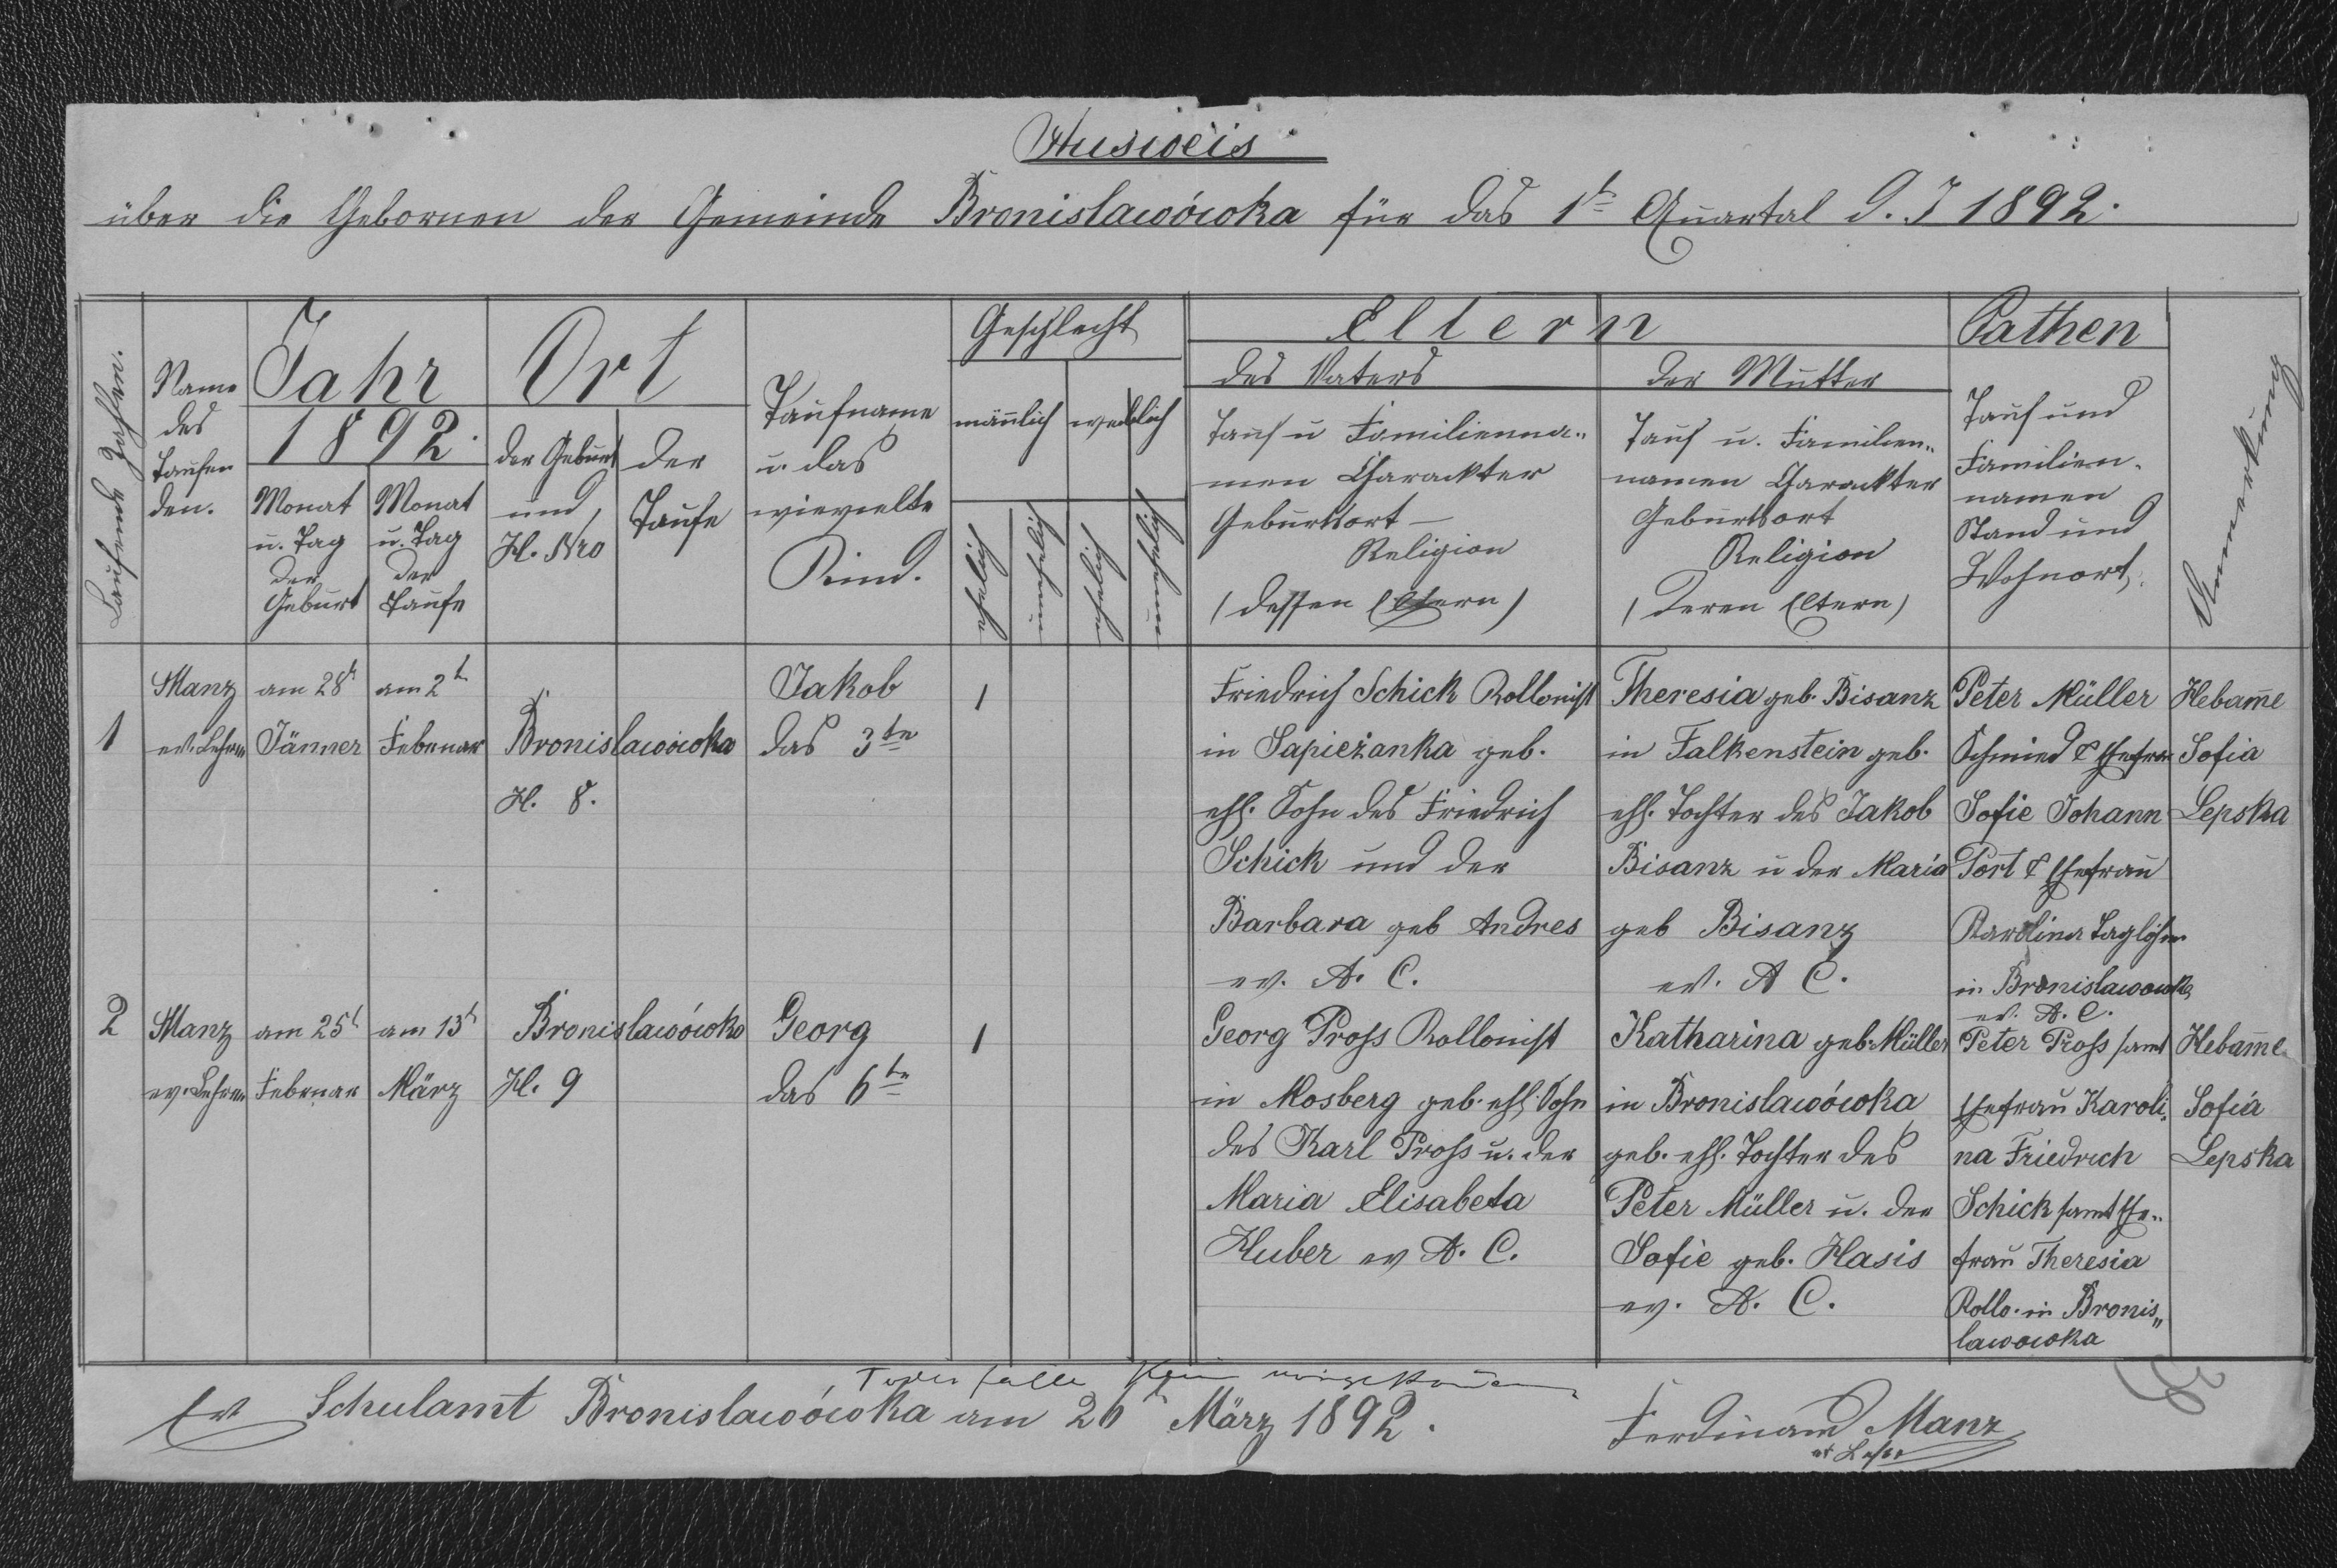 Ausweis
über die Gebornen der Gemeinde Bronislawówka für das 1te Quartal d. J 1892.
Laufende Zahlen.
Name
des
Taufen
den.
Jahr
1892.
Monat
u. Tag
der
Geburt
Monat
u. Tag
der
Taufe
Ort
der Geburt
und
H. Nro
der
Taufe
Taufname
u. das
wievielte
Kind.
Geschlecht
männlich
weiblich
ehelich
unehelich
ehelich
unehelich
Eltern
des Vaters
Tauf u Familienna„
men Charackter
Geburtsort —
Religion
(dessen Eltern)
der Mutter
Tauf u. Familien„
namen Charackter
Geburtsort
Religion
(deren Eltern)
Pathen
Tauf und
Familien„
namen
Stand und
Wohnort.
Anmerkung
1
Manz
ev. Lehrer
am 28t
Jänner
am 2t
Februar
Bronislawówka
H. 8.
Jakob
das 3te
1
Friedrich Schick Kollonist
in Sapieżanka geb.
ehl. Sohn des Friedrich
Schick und der
Barbara geb Andres
ev. A. C.
Theresia geb. Bisanz
in Falkenstein geb.
ehl. Tochter des Jakob
Bisanz u der Maria
geb Bisanz
ev. A C.
Peter Müller
Schmied & Ehefrau
Sofie Johann
Port & Ehefrau
Karolina Taglöhner
in Bronislawowka
ev. A. C.
Hebam̄e
Sofia
Lepska
2
Manz
ev. Lehrer
am 25t
Februar
am 13t
März
Bronislawówka
H. 9
Georg
das 6te
1
Georg Pross Kollonist
in Mosberg geb. ehl. Sohn
des Karl Pross u. der
Maria Elisabeta
Huber ev A. C.
Katharina geb. Müller
in Bronislawówka
geb. ehl. Tochter des
Peter Müller u. der
Sofie geb. Hasis
ev. A. C.
Peter Pross samt
Ehefrau Karoli„
na Friedrich
Schick samt Ehe„
frau Theresia
Kollo. in Bronis„
lawowka
Hebam̄e
Sofia
Lepska
Todesfälle kein
Ev Schulamt Bronislawówka am 26t März 1892.
Ferdinand Manz
ev Lehrer